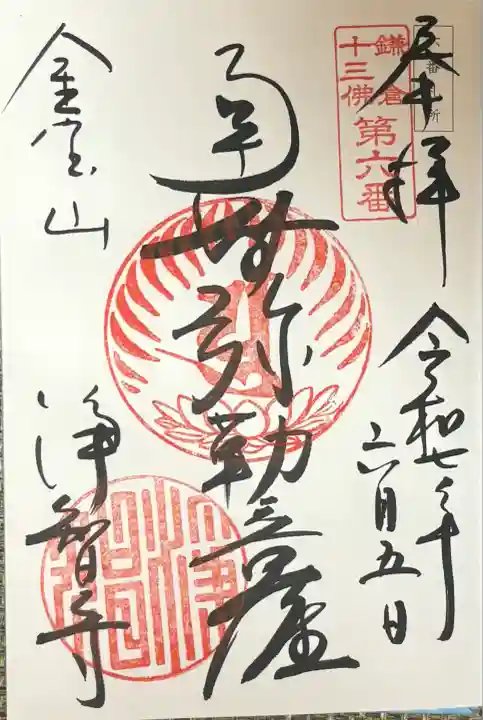 奉拝
鎌倉
十三佛
第六番
令和七年
六月五日
弥勒菩薩
金宝山
浄智寺